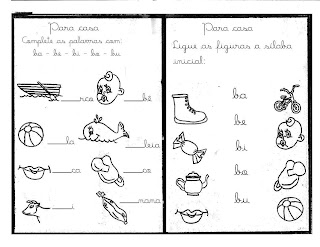 Para casa
Complete as palavras com:
ba - be - bi - bo - bu
___rco ___bê
___la ___leia
___ca ___co
___i ___nana
Para casa
Ligue as figuras a sílaba
inicial:
ba
be
bi
bo
bu